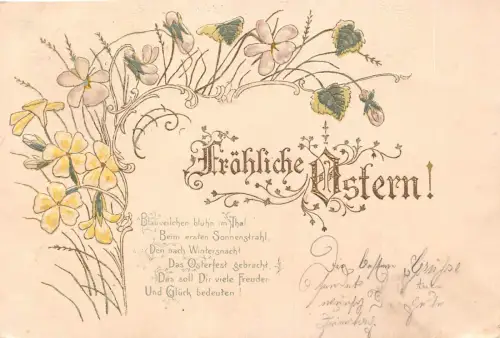 Fröhliche Ostern!
Blauveilchen blühn im Thal
Beim ersten Sonnenstrahl,
Den nach Wintersnacht
Das Osterfest gebracht,
Das soll Dir viele Freuden
Und Glück bedeuten!
besten Grüße